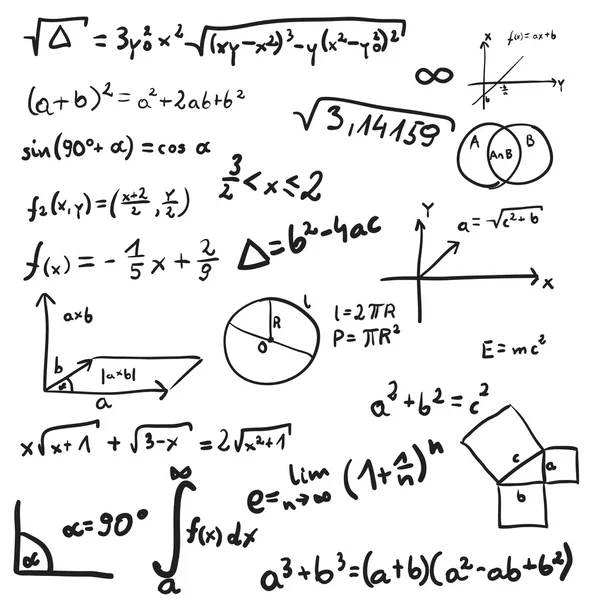 √Δ = 3y₀²x²√(xy-x²)³-y(x²-y₀²)²
f(x)=ax+b
X
Y
b
∞
(a+b)²=a²+2ab+b²
√3,14159
A
A∩B
B
sin(90°+α)=cos α
3/2<x≤2
f₂(x,y)=(x+2/2, y/2)
Y
a=√c²+b
X
Δ=b²-4ac
f(x)=-1/5x+2/9
a×b
b
|a×b|
α
a
l
R
O
l=2πR
P=πR²
E=mc²
a²+b²=c²
x√x+1 + √3-x = 2√x²+1
c
a
b
e=lim n→∞ (1+1/n)ⁿ
α
α=90°
∞
∫f(x)dx
a
a³+b³=(a+b)(a²-ab+b²)